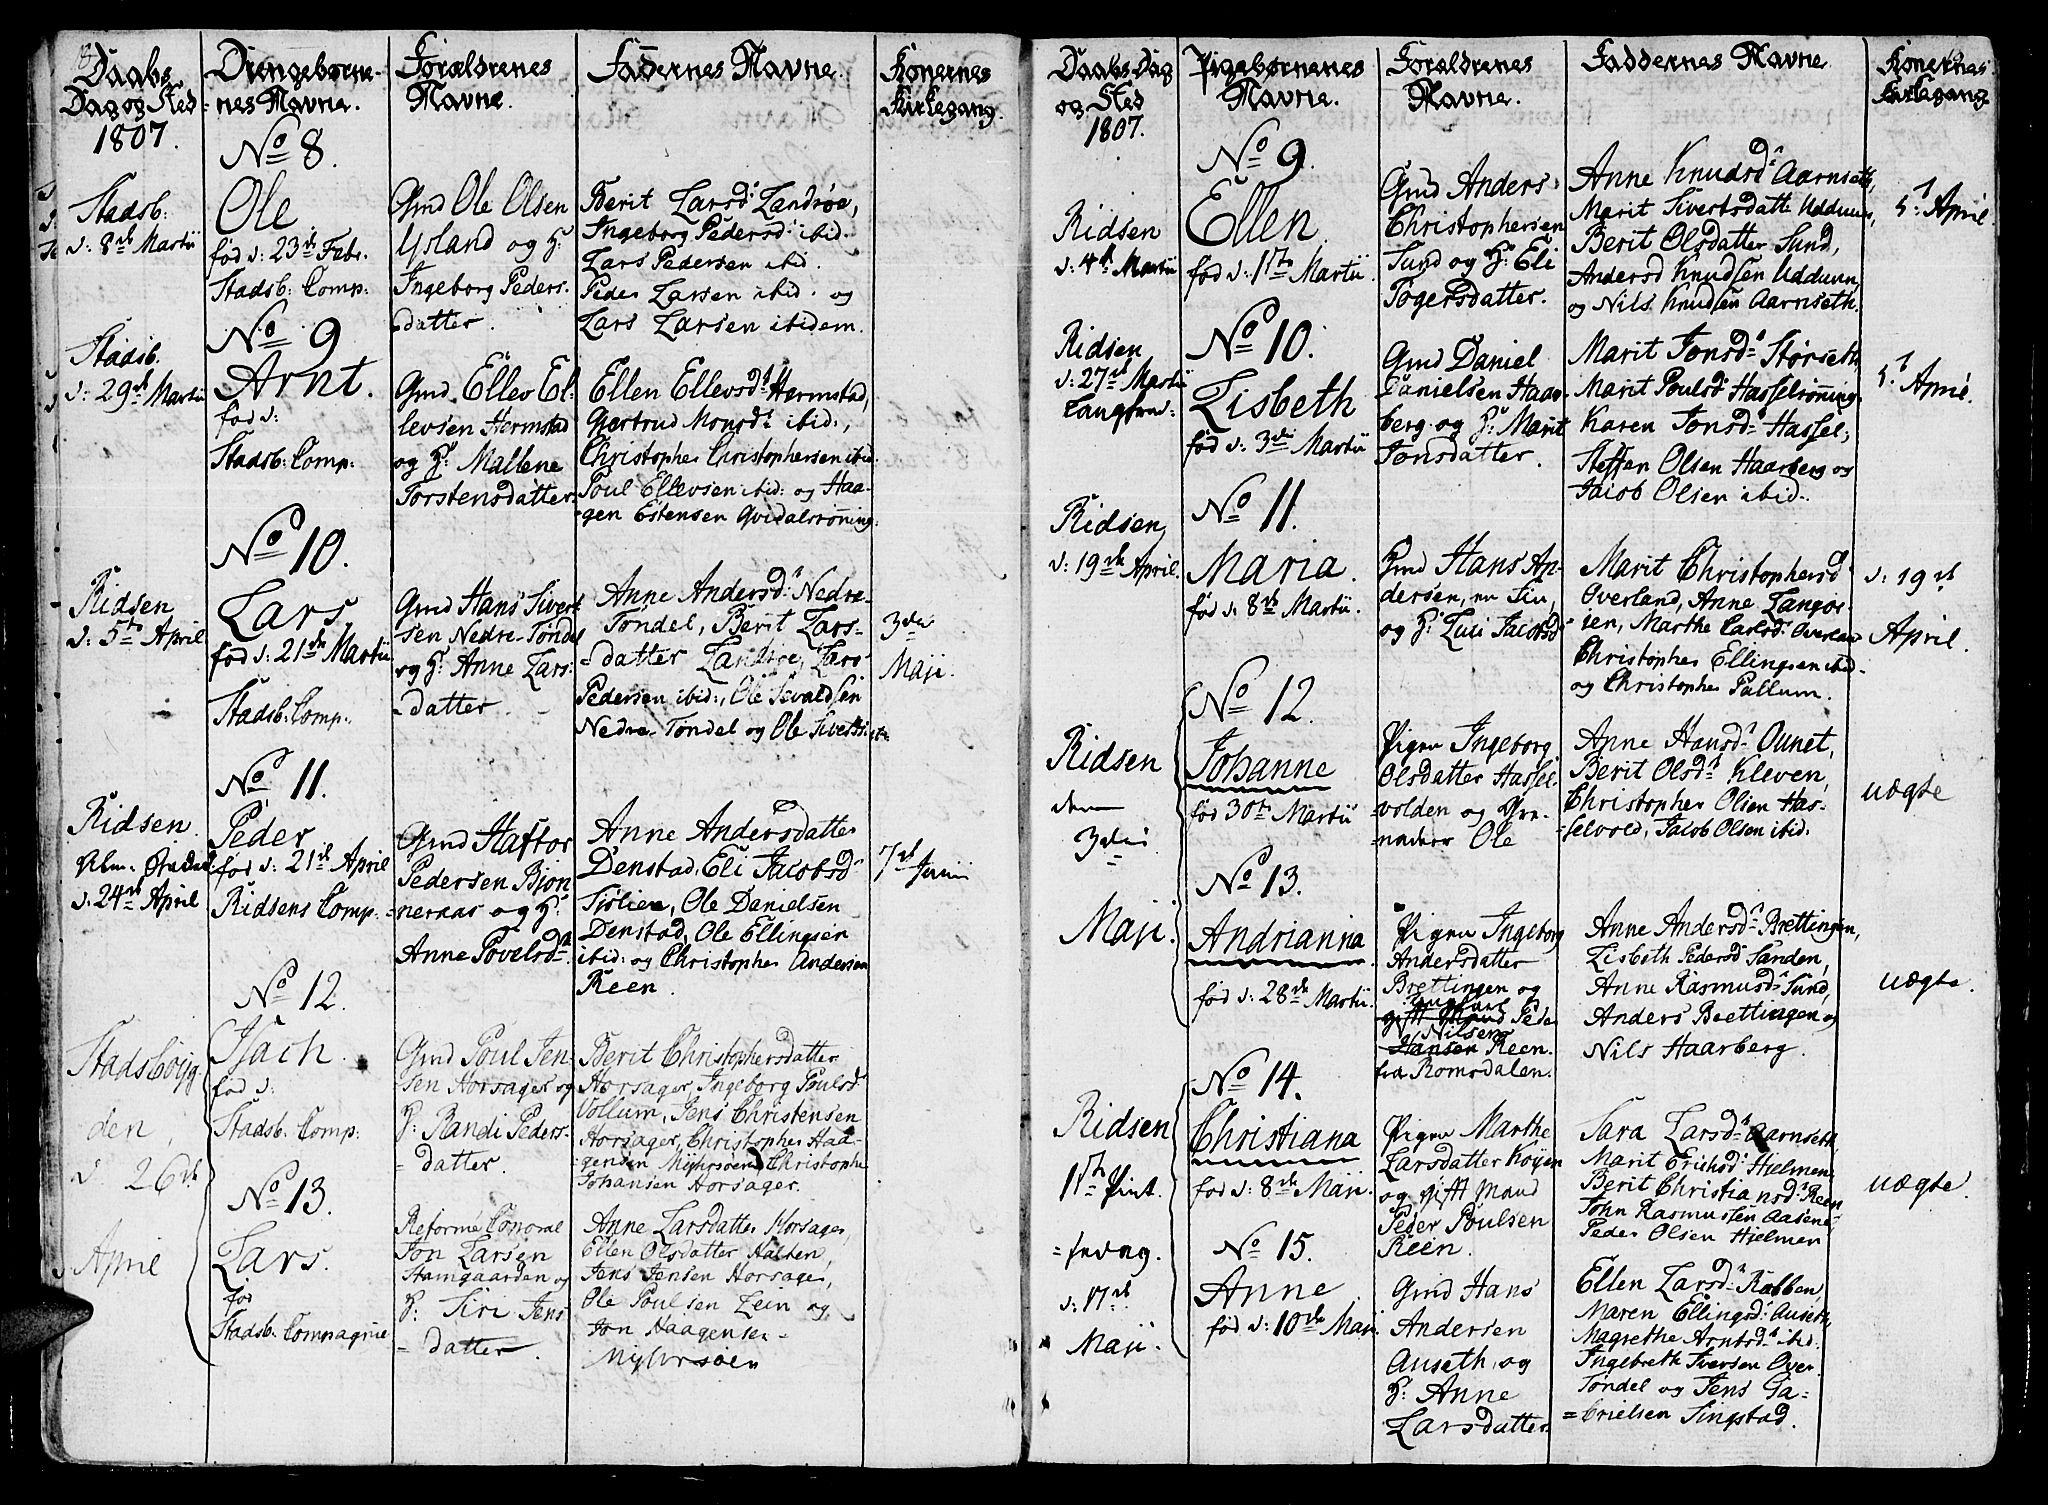 Daabs
Dag og Sted
1807.
Drengebørne-
nes Navne.
Forældrenes
Navne.
Fadernes Navne.
Konernes
Kirkegang.
No 8.
Stadsb:
d: 8de Martii
Ole
fød d: 23de Febr.
Stadsb: Comp:
Gmd Ole Olsen
Ysland og H:
Ingeborg Peders-
datter.
Berit Larsd: Landrøe,
Ingeborg Pedersd: ibid.
Lars Pedersen ibid.
Peder Larsen ibid. og
Lars Larsen ibidem.
No 9
Stadsb.
d: 29de Martii
Arnt.
fød d:
Stadsb: Comp:
Gmd. Ellev El-
levsen Hermstad
og H: Mallene
Torstensdatter.
Ellen Ellevsd: Hermstad,
Gertrud Monsd: ibid:,
Christopher Christophersen ibid.
Poul Ellevsen ibid: og Haa-
gen Estensen Qvidalsrønning.
No 10.
Ridsen
d: 5te April
Lars,
fød d: 21de Martii
Stadsb: Comp:
Gmd Hans Sivert-
sen Nedre-Tøndel
og H: Anne Lars-
datter.
Anne Andersd: Nedre-
Tøndel, Berit Lars-
datter Landrøe, Lars
Pedersen ibid:, Ole Sevaldsen
Nedre-Tøndel og Ole Sivertsen
3de
Maji.
No 11.
Ridsen.
d: 24de April
Peder
fød d: 21de April
Ridsens Comp:
Gmd Haftor
Pedersen Bjon-
neraas og H:
Anne Povelsd:
Anne Andersdatter
Denstad, Eli Jacobsd:
Siølien, Ole Danielsen
Denstad, Ole Ellingsen
ibid: og Christopher Andersen
Reen.
7de Junii
No 12.
Stadsbøyg-
den,
d 26de
April
Isach.
fød d:
Stadsb: Comp:
Gmd Poul Jen-
sen Horsager og
H: Randi Peders-
datter.
Berit Christophersdatter
Horsager, Ingeborg Poulsd:
Vollum, Jens Christensen
Horsager, Christopher Haa-
gensen Myhrsøen, Christopher
Johansen Horsager.
No 13.
Lars.
fød
Stadsb: Compagnie
Reforme Corporal
Jon Larsen
Stamgaarden og
H: Siri Jens
datter.
Anne Larsdatter Horsager,
Ellen Olsdatter Halten,
Jens Jensen Horsager,
Ole Poulsen Lein og
Jon Haagensen
Myhrsøen
Daabs Dag
og Sted
1807.
Pigebørnenes
Navne.
Forældrenes
Navne.
Faddernes Navne
Konernes
Kirkegang.
No 9.
Ridsen
d: 4de Martii
Ellen,
fød d: 1ste Martii.
Gmd Anders
Christophersen
Sund og H: Eli
Togersdatter.
Anne Knudsd: Aarnseth,
Marit Sivertsdatter Udduun,
Berit Olsdatter Sund,
Anders Knudsen Udduun,
og Nils Knudsen Aarnseth.
5t April
No 10.
Ridsen
d: 27de Martii
Langfred:
Lisbeth
fød d: 3de Martii
Gmd Daniel
Danielsen Haar-
berg og H: Marit
Jonsdatter.
Marit Jonsd: Størseth
Marit Poulsd: Hasselrønning.
Karen Jonsd: Hassel,
Steffen Olsen Haarberg og
Jacob Olsen ibid.
5t April.
No 11.
Ridsen
d: 19de April.
Maria.
fød d: 8de Martii.
Gmd Hans An-
dersen,
og H: Jacobsd:
Marit Christophersd:
Overland, Anne Langør-
ien, Marthe Carlsd: Overland
Christopher Ellingsen ibid
og Christopher Pallum.
d: 19de
April.
No 12.
Ridsen
3die
Maji.
Johanne
fød 30te Martii
Pigen Ingeborg
Olsdatter Hassel-
volden og Gre-
nader Ole
Anne Hansd: Ounet,
Berit Olsd: Kleven,
Christopher Olsen Has-
selvold, Jacob Olsen ibid:
uægte
No 13.
Andrianna
fød d: 28de Martii.
Pigen Ingeborg
Andersdatter
Brettingen og
Ungkarl
gift Mand Peder
Nilsen
Hansen Reen.
fra Romsdalen.
Anne Andersd: Brettingen,
Lisbeth Pedersd Sanden,
Anne Rasmusd: Sund,
Anders Brettingen og
Nils Haarberg.
uægte.
No 14.
Ridsen
1ste Pint-
d: 17de
Maji.
Christiana
fød d: 8de Maji.
Pigen Marthe
Larsdatter Køyen
og gift Mand
Peder Poulsen
Reen.
Sara Larsd: Aarnseth,
Marit Erichsd: Hjelmen
Berit Christiansd: Reen
John Rasmussen Aasen
Peder Olsen Hjelmen
uægte.
No 15.
Anne
fød d: 10de Maji.
Gmd Hans
Andersen
Auseth, og
H: Anne
Larsdatter.
Ellen Larsd: Rabben,
Maren Ellingsd: Auseth,
Magrethe Arntsd: ibid:
Ingebreth Iversen Over
Tøndel og Jens Ga-
brielsen Singstad.